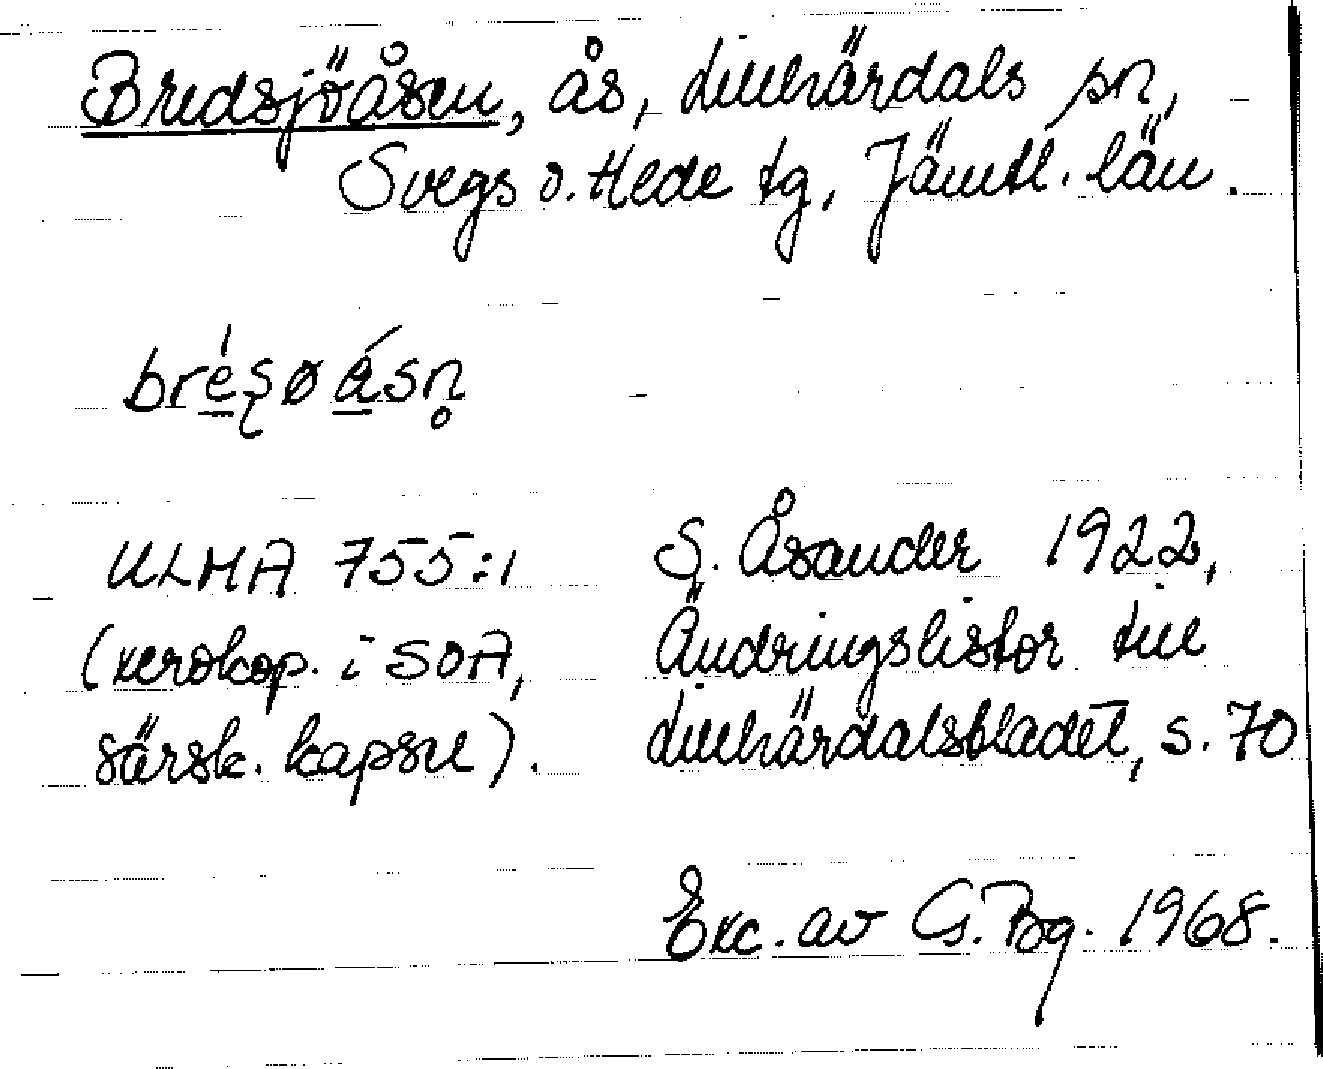 Bredsjöåsen, ås, Lillhärdals sn,
Svegs o. Hede tg, Jämtl. län.
bre̱șøa̱sn̥
ULMA 755:1
(xerokop. i SOA,
särsk. kapsel).
S. Åsander 1922,
Ändringslistor till
Lillhärdalsbladet, s. 70
Exc. av G. Bg. 1968.